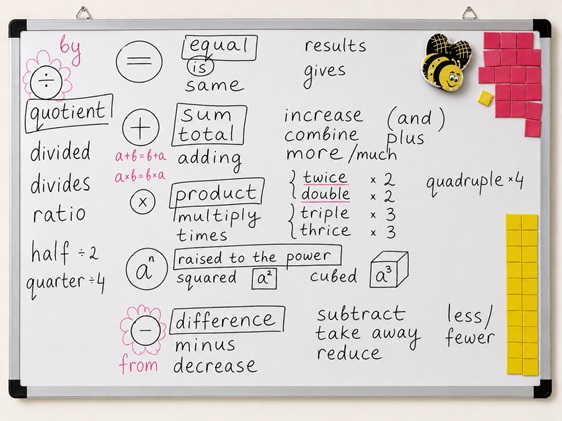 by
÷
quotient
divided
divides
ratio
half ÷2
quarter ÷4
=
equal
is
same
results
gives
+
a+b=b+a
a×b=b×a
sum
total
adding
increase (and)
combine plus
more/much
×
product
multiply
times
twice × 2
double × 2
triple × 3
thrice × 3
quadruple ×4
aⁿ
raised to the power
squared a²
cubed a³
−
from
difference
minus
decrease
subtract
take away
reduce
less/
fewer